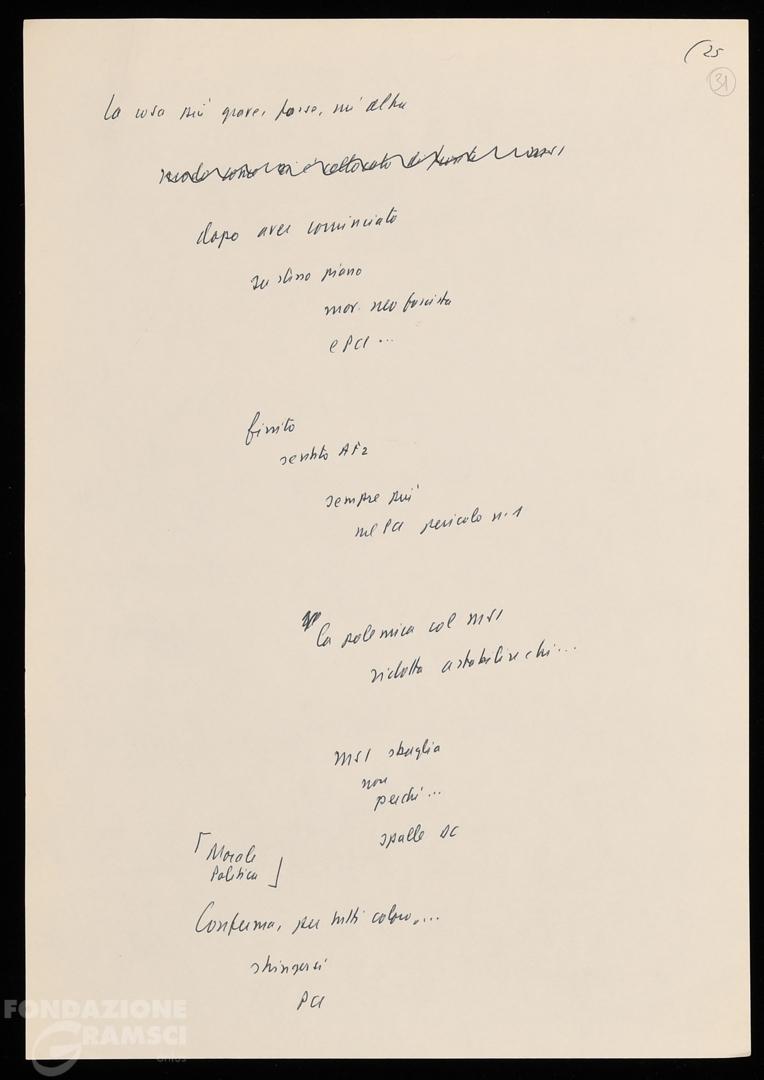 (25
31
La cosa più grave, forse, è un'altra
dopo aver cominciato
su stesso piano
mov. neo fascista
e PCI ...
finito
sempre più
nel PCI pericolo n. 1
la polemica col MSI
ridotta a stabilire chi...
MSI sbaglia
non
perchè...
spalle DC
Morale
Politica
Conferma, per tutti coloro, ...
stringersi
PCI
FONDAZIONE
GRAMSCI
onlus